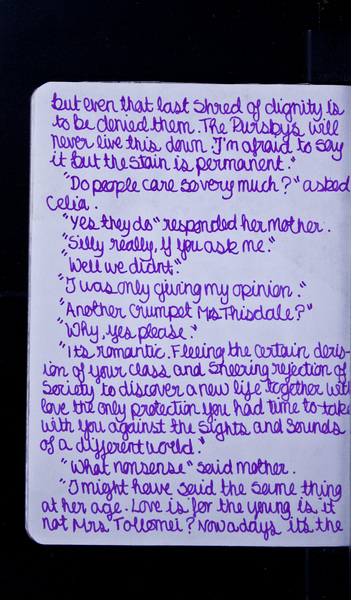 but even that last shred of dignity is
to be denied them. The Pursbys will
never live this down. I'm afraid to say
it but the stain is permanent."
"Do people care so very much?" asked
Celia.
"Yes they do" responded her mother.
"Silly really, if you ask me."
"Well we didnt."
"I was only giving my opinion."
"Another crumpet Mrs Thisdale?"
"Why, yes please."
"Its romantic. Fleeing the certain deris-
ion of your class and sneering rejection of
Society to discover a new life together with
love the only protection you had time to take
with you against the sights and sounds
of a different world."
"What nonsense" said mother.
"I might have said the same thing
at her age. Love is for the young is it
not Mrs Tollomei? Nowadays its the